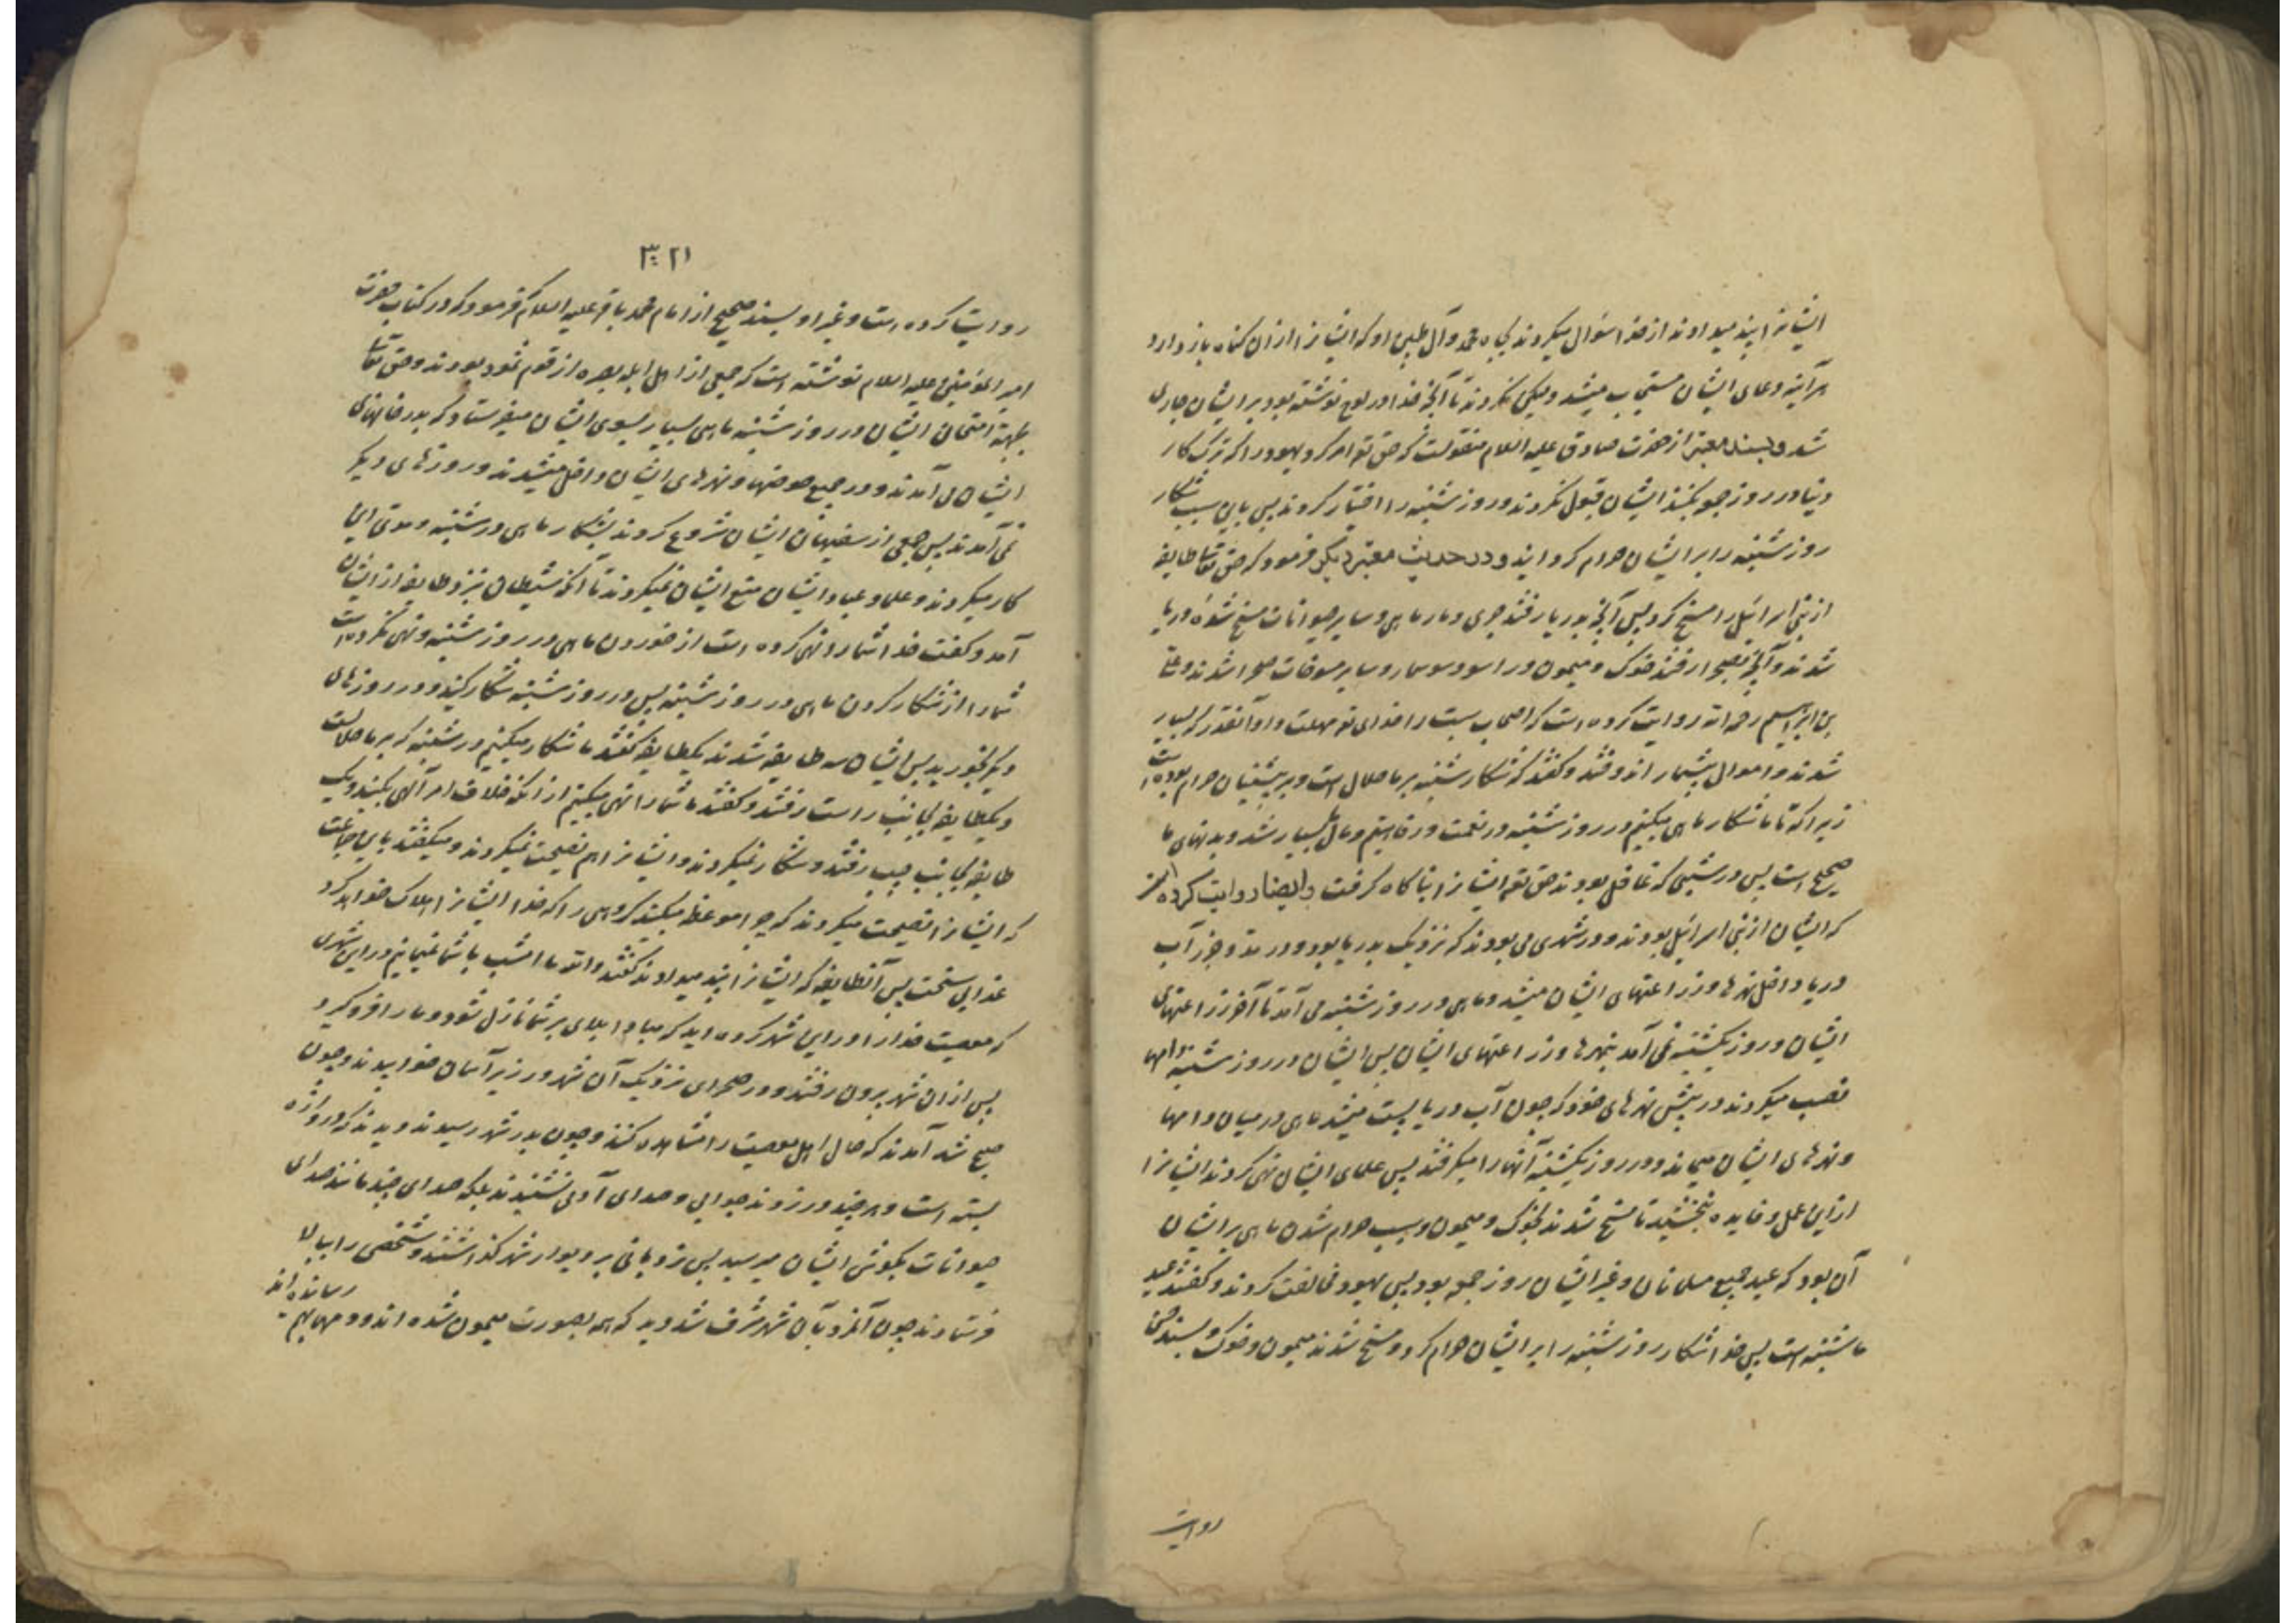 ایشانرا پند میدادند از خدا سؤال میکردند بجاه محمد وآل طیبین او که ایشانرا ازان کناه باز دارد
هر آینه دعای ایشان مستجاب میشد ولیکن نکردند تا آنچه خدا در لوح نوشته بود بر ایشان جاری
شد وبسند معتبر از حضرت صادق علیه السلام منقولست که حق تع امر کرد یهود را که ترک کار
دنیا در روز جمعه بکنند ایشان قبول نکردند وروز شنبه را اختیار کردند پس باین سبب شکار
روز شنبه را بر ایشان حرام کردانید ودر حدیث معتبر دیکر فرمود که حق تعا طایفه
از بنی اسرائیل را مسخ کرد پس آنچه بدریا رفتند جری ومار ماهی وسایر حیوانات مسخ شدهٔ دریا
شدند وآنچه بصحرا رفتند خوک ومیمون وراسو وسوسمار وسایر مسوخات صحرا شدند وعلی
بن ابراهیم رحمه الله روایت کرده است که اصحاب سبت را خدای تع مهلت داد آنقدر که بسیار
شدند واموال بیشمار اندوختند وکفتند که شکار شنبه بر ما حلال است وبر پیشینیان حرام بوده است
زیرا که تا ما شکار ماهی میکنیم در روز شنبه در نعمت ورفاهیتیم ومال ما بسیار شد وبدنهای ما
صحیح است پس در شبی که غافل بودند حق تع ایشانرا بناکاه کرفت وایضا روایت کرده است
که ایشان از بنی اسرائیل بودند ودر شهری می بودند که نزدیک بدریا بود ودر مد وجزر آب
دریا داخل نهرها وزراعتهای ایشان میشد وماهی در روز شنبه می آمد تا آخر زراعتهای
ایشان وروز یکشنبه نمی آمد بنهرها وزراعتهای ایشان پس ایشان در روز شنبه دامها
نصب میکردند در پیش نهرهای خود که چون آب دریا پست میشد ماهی در میان دامها
ونهرهای ایشان میماند ودر روز یکشنبه آنها را میکرفتند پس علمای ایشان نهی کردند ایشانرا
ازین عمل وفایده نبخشید تا مسخ شدند بخوک ومیمون وسبب حرام شدن ماهی بر ایشان
آن بود که عید جمیع مسلمانان وغیر ایشان روز جمعه بود پس یهود مخالفت کردند وکفتند عید
ما شنبه است پس خدا شکار روز شنبه را بر ایشان حرام کرد ومسخ شدند میمون وخوک وبسند
روایت
۳۰۲۱
روایت کرده است وغیر او بسند صحیح از امام محمد باقر علیه السلام فرمود که در کتاب حضرت
امیر المؤمنین علیه السلام نوشته است که جمعی از اهل ابله بصره از قوم ثمود بودند وحق تعا
بجهة امتحان ایشان در روز شنبه ماهی بسیار بسوی ایشان میفرستاد که بدر خانهای
ایشان می آمدند ودر جمیع حوضها ونهرهای ایشان داخل میشدند ودر روزهای دیکر
نمی آمدند پس جمعی از سفیهان ایشان شروع کردند بشکار ماهی در شنبه ومدتی این
کار میکردند وعلما وعباد ایشان منع ایشان نمیکردند تا آنکه شیطان نزد طایفه از ایشان
آمد وکفت خدا شما را نهی کرده است از خوردن ماهی در روز شنبه ونهی نکرده است
شما را از شکار کردن ماهی در روز شنبه پس در روز شنبه شکار کنید ودر روزهای
دیکر بخورید پس ایشان سه طایفه شدند یکطایفه کفتند ما شکار میکنیم در شنبه که بر ما حلالست
ویکطایفه بجانب راست رفتند وکفتند ما شما را نهی میکنیم از آنکه خلاف امر آلهی بکنید ویک
طایفه بجانب چپ رفتند وشکار نمیکردند وایشانرا هم نصیحت نمیکردند ومیکفتند باین جماعت
که ایشانرا نصیحت میکردند که چرا موعظه میکنید کروهی را که خدا ایشانرا هلاک خواهد کرد
عذابی سخت پس آنطایفه که ایشانرا پند میدادند کفتند والله ما امشب با شما نمیمانیم در این شهری
که معصیت خدا را در این شهر کرده اید که مبادا بلای بر شما نازل شود وما را فرو کیرد
پس ازان شهر بیرون رفتند ودر صحرای نزدیک آن شهر در زیر آسمان خوابیدند وچون
صبح شد آمدند که حال اهل معصیت را مشاهده کنند وچون بدر شهر رسیدند دیدند که دروازه
بسته است وهر چند در زدند جوابی وصدای آدمی نشنیدند بلکه صدای چند مانند صدای
حیوانات بکوش ایشان میرسید پس نردبانی بر دیوار شهر کذاشتند وشخصی را ببالا
فرستادند چون آنمرد بآن شهر مشرف شد دید که همه بصورت میمون شده اند ودمها بهم
رسانده اند